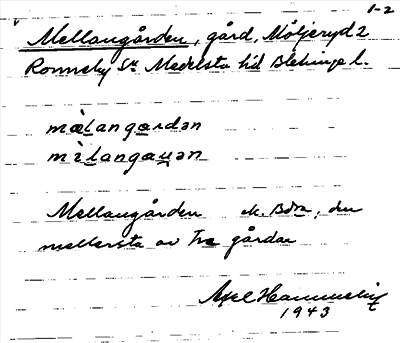 1-2
Mellangården, gård, Möljeryd 2
Ronneby Sn Medelsta hd Blekinge l.
mælangardən
mɛlangaɹən
Mellangården den
mellersta av tre gårdar
Axel
1943